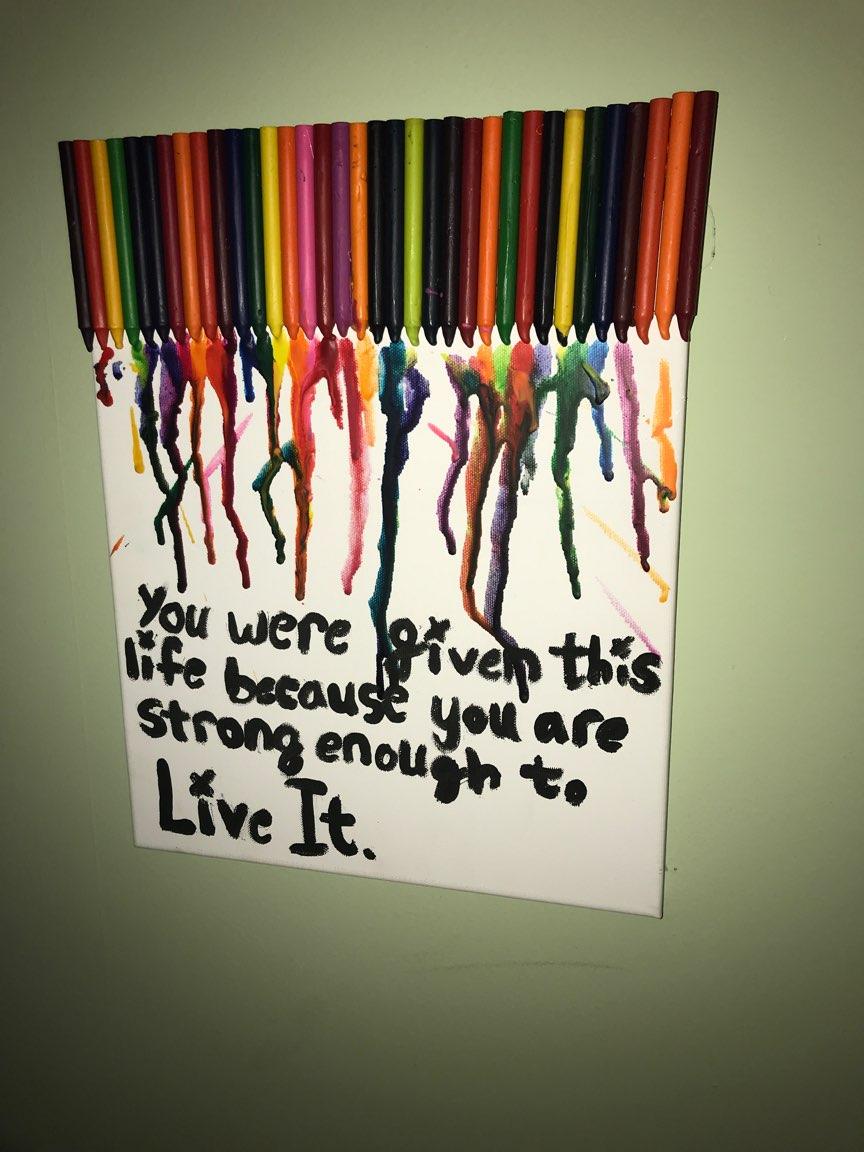 You were given this
life because you are
strong enough to
Live It.